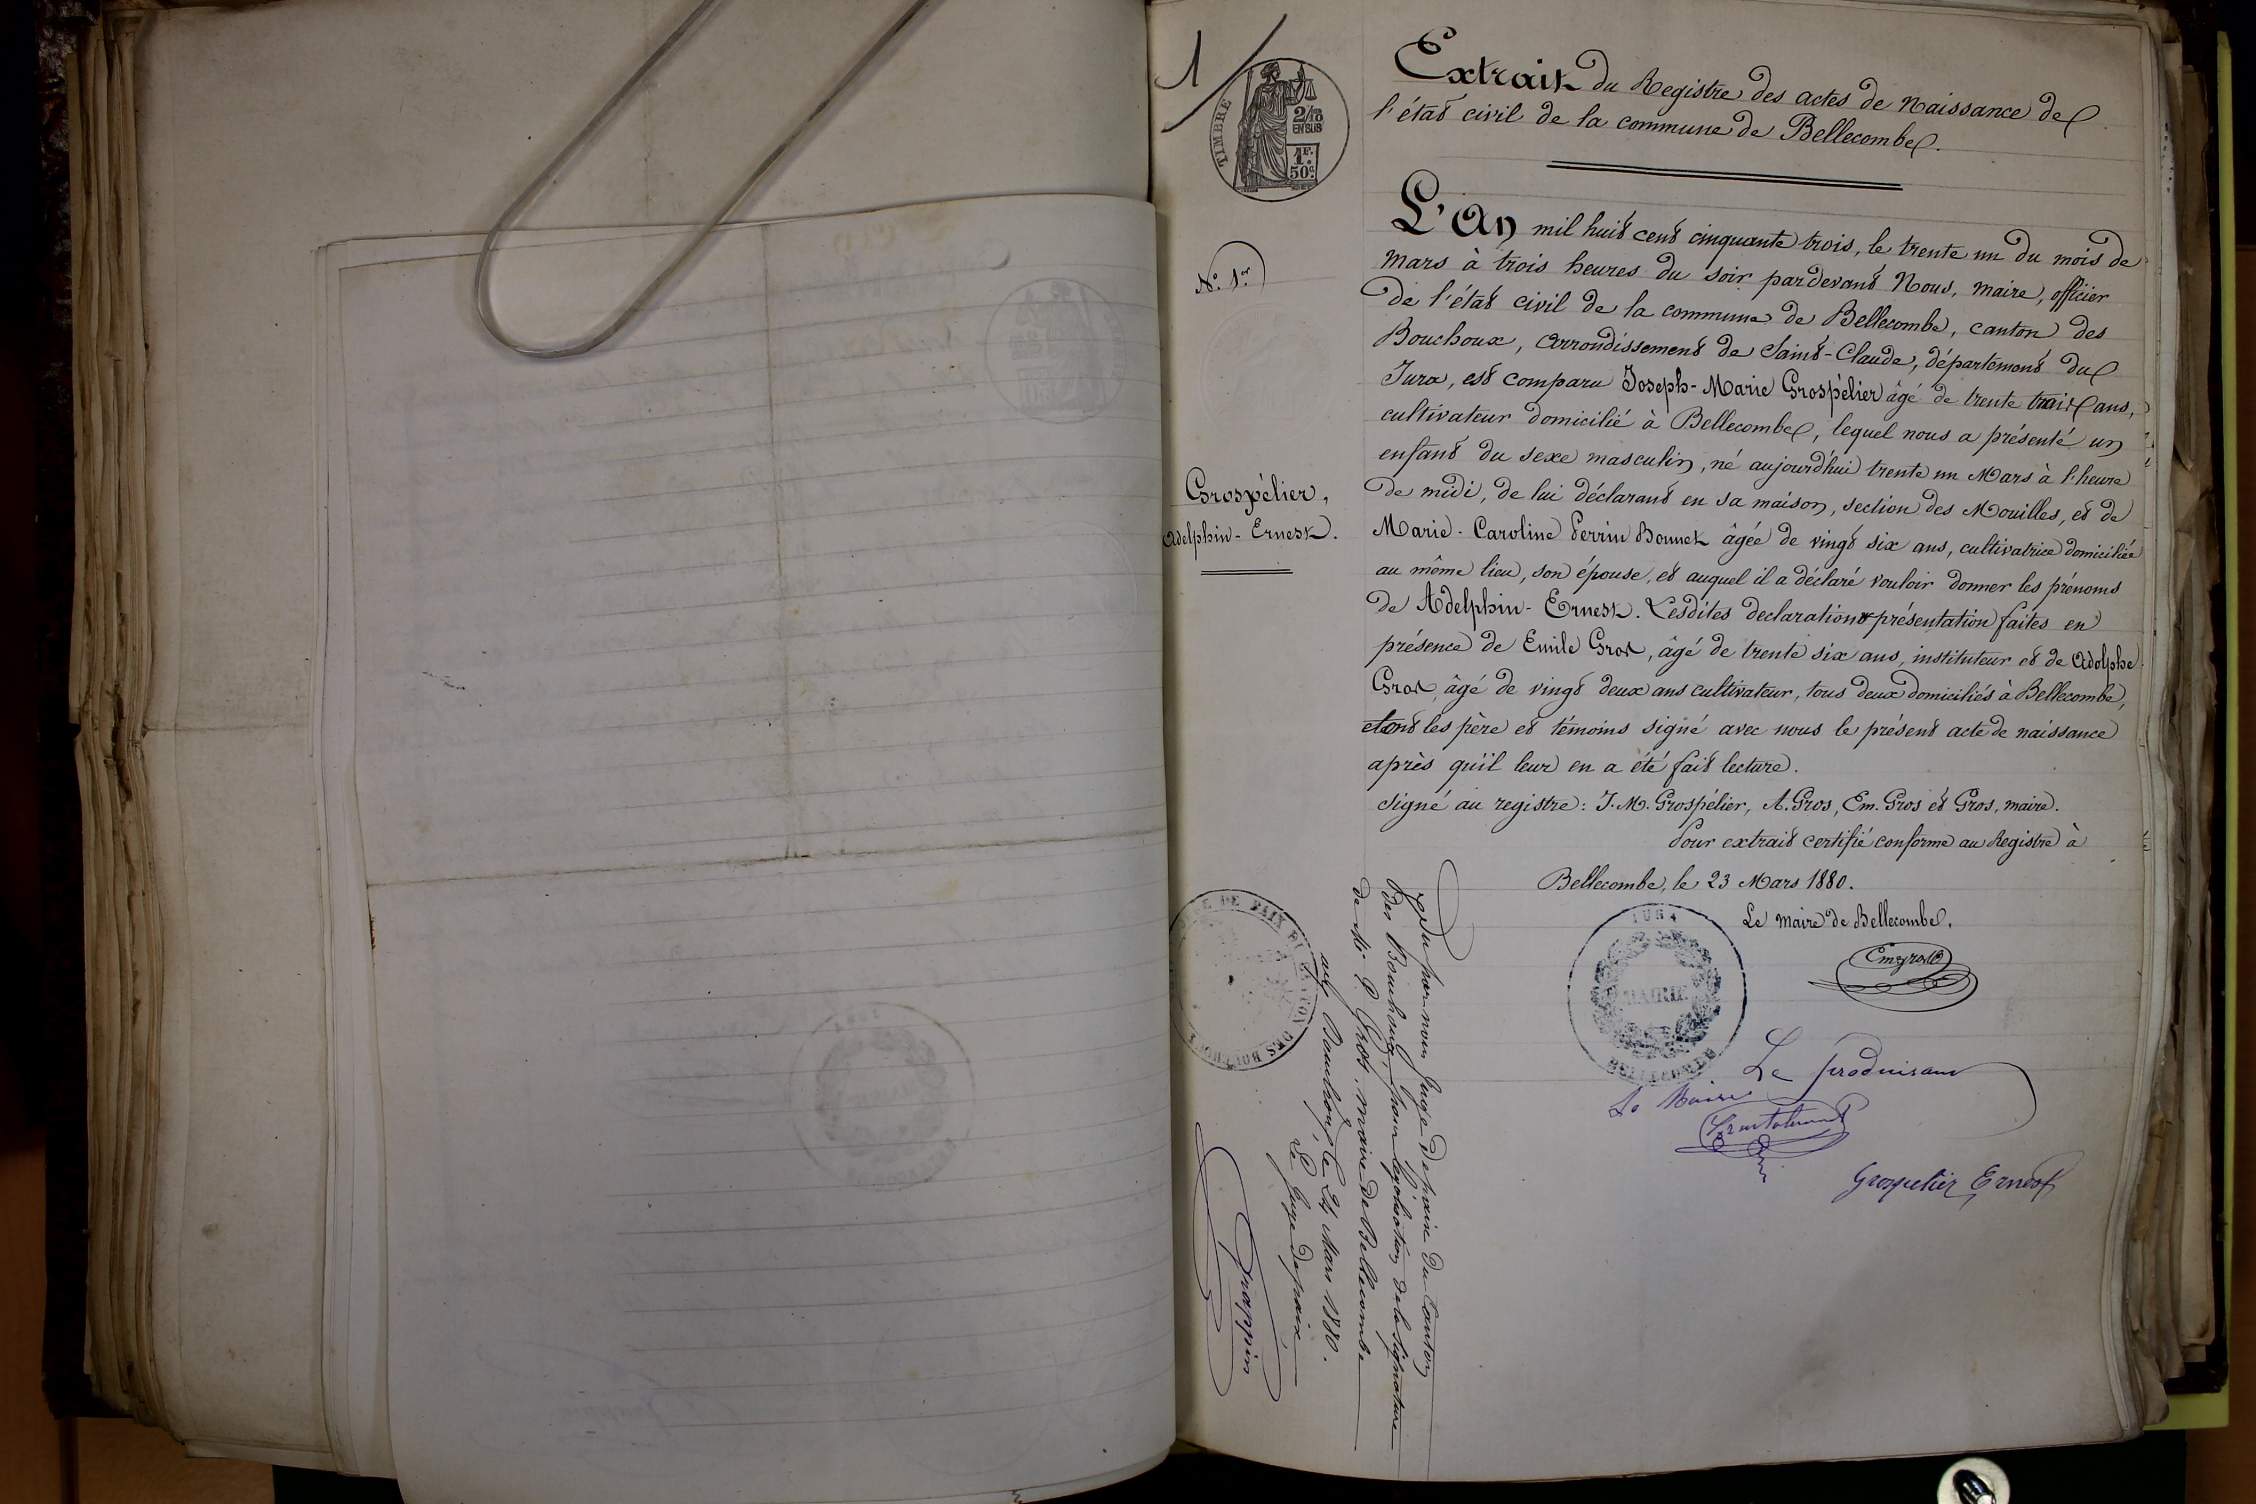 1/
TIMBRE
2/10
EN SUS
1F.
50c.
Extrait du Registre des actes de Naissance de
l'état civil de la commune de Bellecombe.
N.º 1.er
Grospélier,
Adelphin-Ernest.
L'An mil huit cent cinquante trois, le trente un du mois de
Mars à trois heures du soir pardevant Nous, maire, officier
de l'état civil de la commune de Bellecombe, canton des
Bouchoux, arrondissement de Saint-Claude, département du
Jura, est comparu Joseph-Marie Grospélier âgé de trente trois ans,
cultivateur domicilié à Bellecombe, lequel nous a présenté un
enfant du sexe masculin, né aujourd'hui trente un Mars à l'heure
de midi, de lui déclarant en sa maison, section des Mouilles, et de
Marie-Caroline Perrin Bonnet âgée de vingt six ans, cultivatrice domiciliée
au même lieu, son épouse, et auquel il a déclaré vouloir donner les prénoms
de Adelphin-Ernest. Lesdites declaration et présentation faites en
présence de Emile Gros, âgé de trente six ans, instituteur et de Adolphe
Gros, âgé de vingt deux ans cultivateur, tous deux domiciliés à Bellecombe,
et ont les père et témoins signé avec nous le présent acte de naissance
après qu'il leur en a été fait lecture.
signé au registre: J. M. Grospélier, A. Gros, Em. Gros et Gros, maire.
Pour extrait certifié conforme au Registre à
Bellecombe, le 23 Mars 1880.
Le Maire de Bellecombe.
Em gros
MAIRIE
BELLECOMBE
Le produisant
Le Maire
Grospelier Ernest
Vu par nous Juge de paix du Canton
des Bouchoux, pour légalisation de la signature
de Mr. E Gros, maire de Bellecombe
aux Bouchoux, le 24 Mars 1880.
Le Juge de paix
Grappin
JUSTICE DE PAIX DU CANTON DES BOUCHOUX